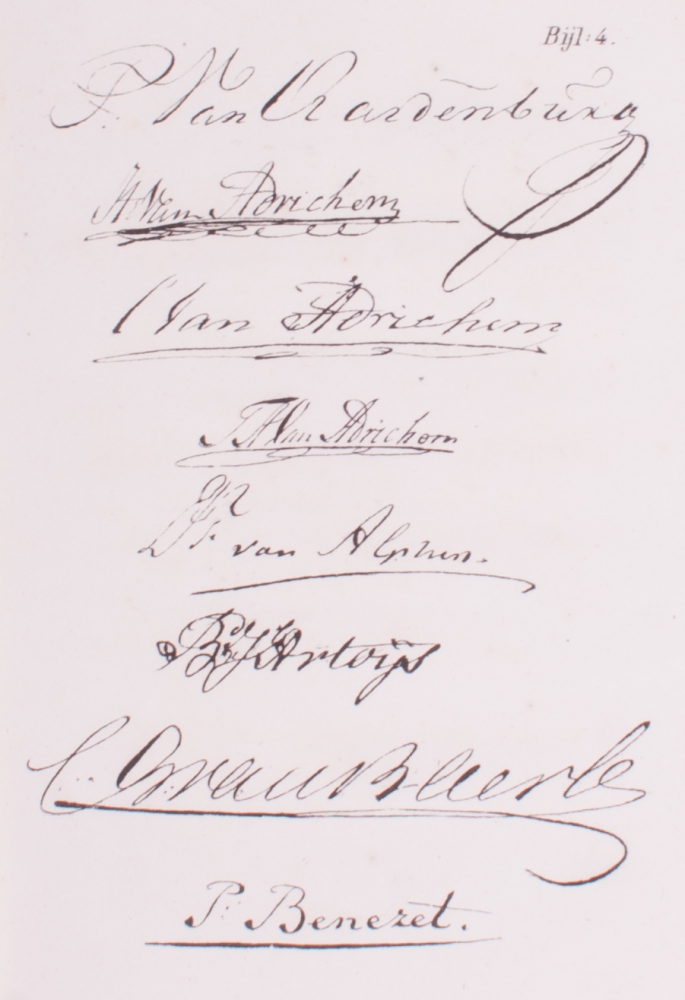 Bijl: 4.
P. Van Aardenburg
A Van Adrichem
C Van Adrichem
J A Van Adrichem
van Alphen.
Artoijs
C. van Baerle
P. Benezet.